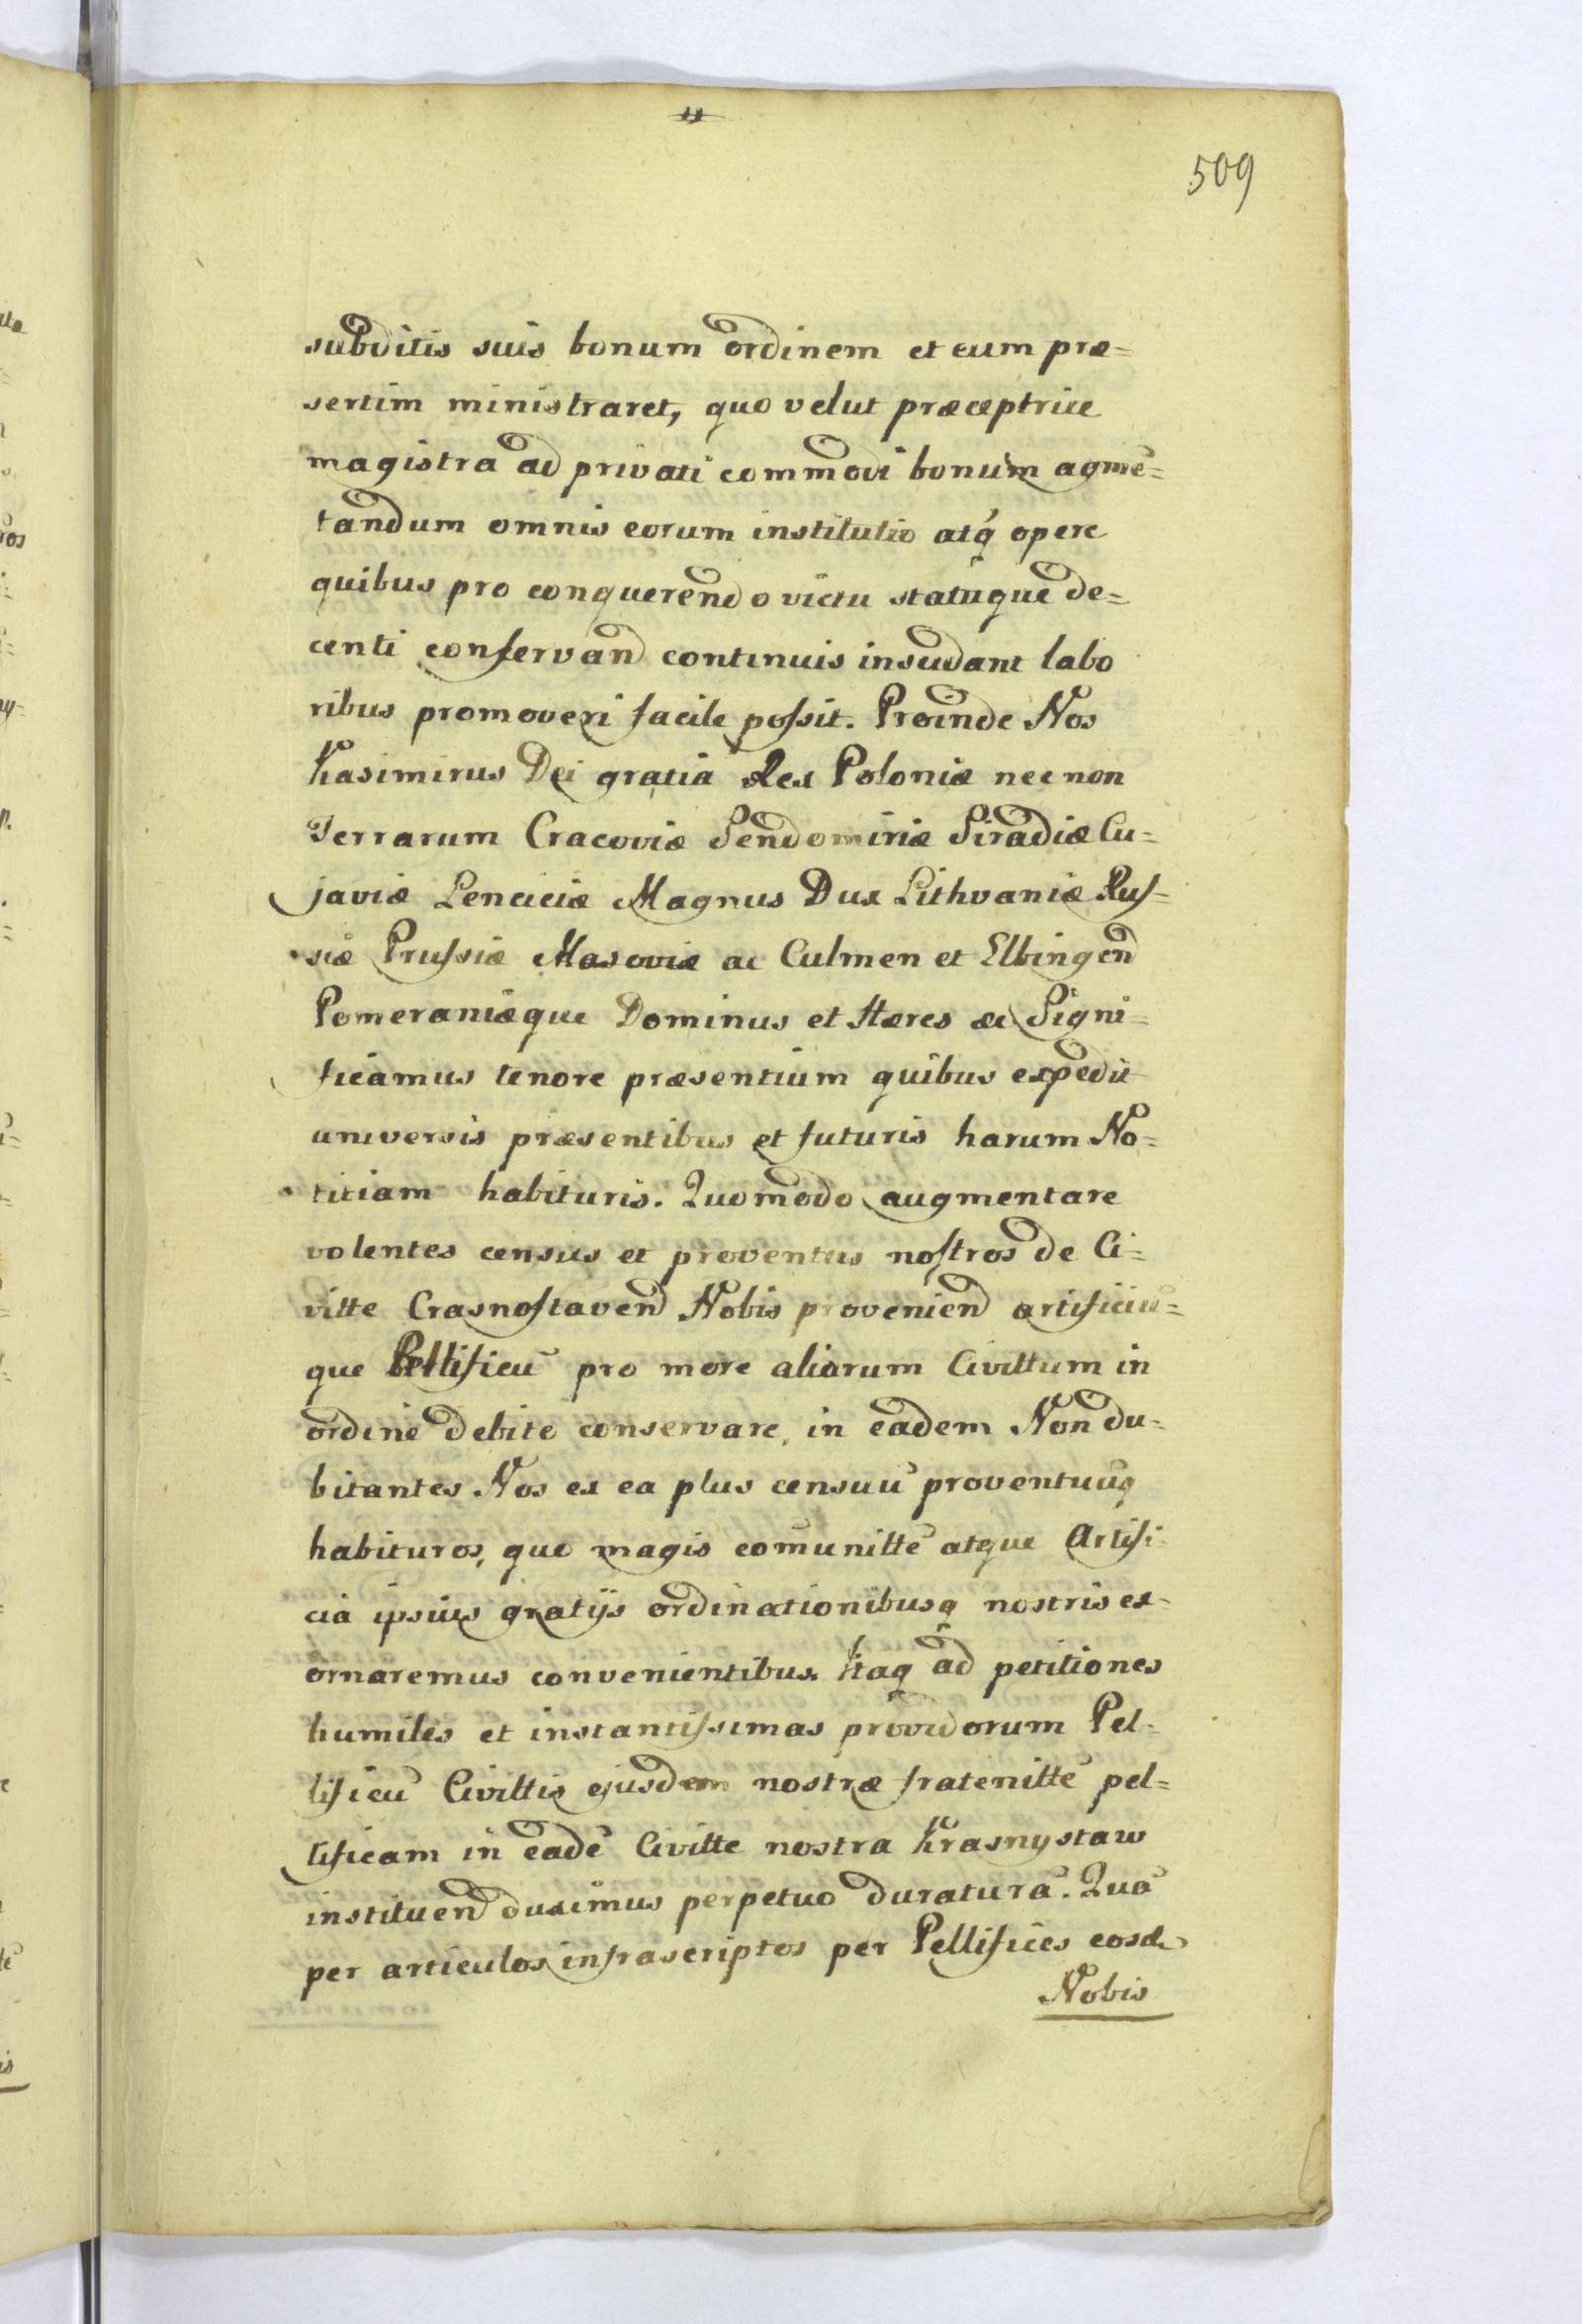 509
subditis suis bonum ordinem et eum præ=
sertim ministraret, quo velut præceptrice
magistra ad privati commodi bonum agmē=
tandum omnis eorum institutio atq́ opere
quibus pro conquerendo victu statuque de=
centi conſervan̄d continuis insudant labo
ribus promoveri facile poſsit. Proinde Nos
Kasimirus Dei gratia Rex Poloniæ necnon
Terrarum Cracoviæ Sendomiriæ Siradiæ Cu=
javiæ Lenciciæ Magnus Dux Lithvaniæ Ruſ=
siæ Pruſsiæ Masoviæ ac Culmen et Elbingen̄d
Pomeraniæque Dominus et Hæres æc Signi=
ficamus tenore præsentium quibus expedit
universis præsentibus et futuris harum No=
titiam habituris. Quomodo augmentare
volentes census et proventus noſtros de Ci=
vitte Crasnoſtaven̄d Nobis provenien̄d artificiū=
que Pellificū pro more aliarum Civittum in
ordine debite conservare, in eadem Non du=
bitantes Nos ex ea plus censuū proventuūq
habituros, quo magis com̄unittē atque Artifi=
cia ipsius gratijs ordinationibusq nostris ex=
ornaremus convenientibus. Itaq ad petitiones
humiles et instantiſsimas providorum Pel=
lificū Civittis ejusdem nostræ fratenittē pel=
lificam in eadē Civitte nostra Krasnystaw
instituen̄d duximus perpetuo duraturā. Quā
per articulos infrascriptos per Pellifices eosd.
Nobis